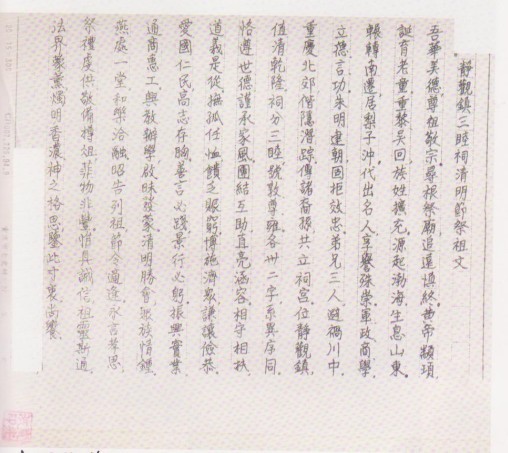 靜觀鎮三睦祠清明節祭祖文
吾華美德尊祖敬宗.尋根祭廟追遠慎終.黃帝顓頊
誕育老童.重黎吳回族姓擴充.源起渤海生息山東.
輾轉南遷居梨子沖.代出名人享譽殊崇.軍政商學
立德言功.朱明建朝固拒效忠.弟兄三人避禍川中.
重慶北郊偕隱潛踪.傳諸裔孫共立祠宮.位靜觀鎮
值清乾隆.祠分三睦號敦尊雍.各卅二字系異序同
恪遵世德謹承家風.團結互助直亮涵容.相守相扶
道義是從.撫孤任恤饋乏賑窮.博施濟眾謙讓儉恭.
愛國仁民高志存胸.善言必踐景行必躬.振興實業
通商惠工.興教辦學啟昧發蒙.清明勝會聚族情鍾.
燕處一堂和樂洽融.昭告列祖節令適逢.永言孝思
祭禮虔供.敬備樽俎非物非豐.惟具誠信祖靈斯通
法界蒙薰燭明香濃.神之格思鑒此寸衷.尚饗.